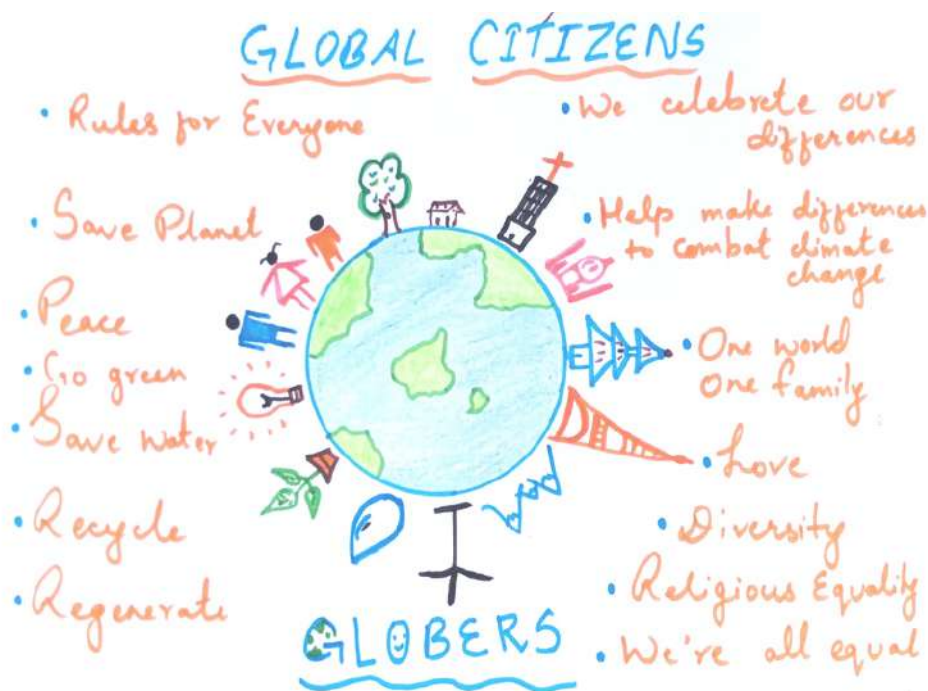 GLOBAL CITIZENS
• Rules for Everyone
• Save Planet
• Peace
• Go green
• Save water
• Recycle
• Regenerate
• We celebrate our
differences
• Help make differences
to combat climate
change
• One world
One family
• Love
• Diversity
• Religious Equality
• We're all equal
GLOBERS